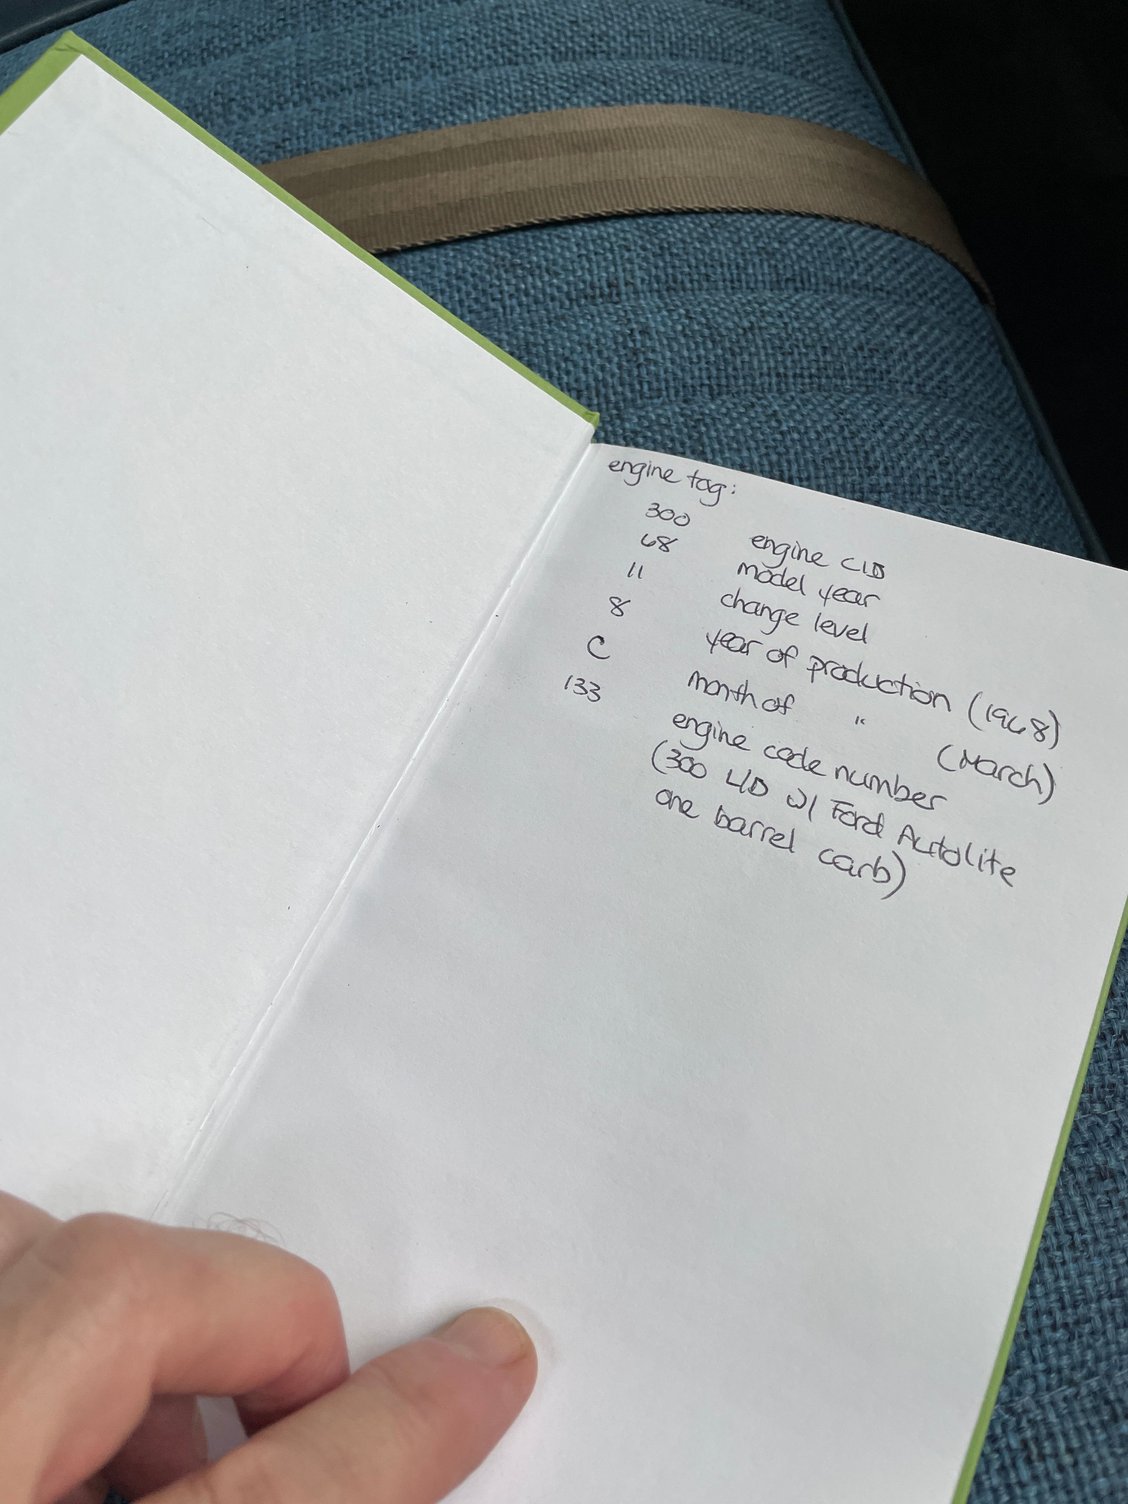 engine tag:
300 engine CID
68 model year
11 change level
8 year of production (1968)
C month of " (March)
133 engine code number
(300 CID w/ Ford Autolite
one barrel carb)